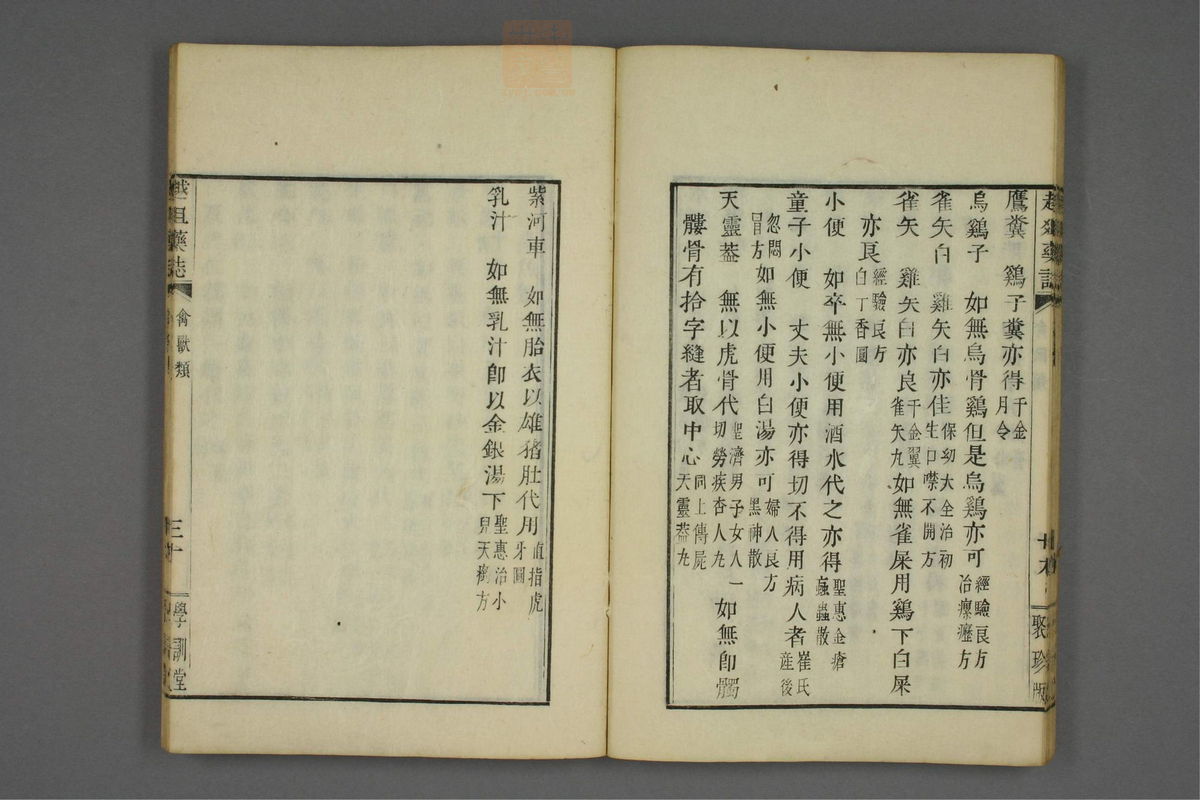 鷹糞　鷄子糞亦得千金月令
烏鷄子　如無烏骨鷄但是烏鷄亦可經驗良方治瘰癧方
雀矢白　雞矢白亦佳保幼大全治初生口噤不開方
雀矢　雞矢白亦良千金翼雀矢丸如無雀屎用鷄下白屎
亦良經驗良方白丁香圓
小便　如卒無小便用酒水代之亦得聖惠金瘡蝱蟲散
童子小便　丈夫小便亦得切不得用病人者崔氏產後
忽悶冒方如無小便用白湯亦可婦人良方黑神散
天靈葢　無以虎骨代聖濟男子女人一切勞疾杏人丸如無卽髑
髏骨有拾字縫者取中心同上傳屍天靈葢丸
聚珍版
紫河車　如無胎衣以雄猪肚代用直指虎牙圓
乳汁　如無乳汁卽以金銀湯下聖惠治小兒天癇方
禽獸類
三十
學訓堂